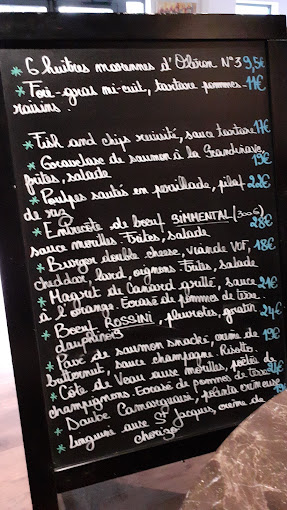 * 6 huîtres marennes d'Oléron N°3 9,5€
* Foie-gras mi-cuit, tartare pommes - 17€
raisins.
* Fish and chips revisité, sauce tartare 17€
* Gravelax de saumon à la Scandinave, 19€
frites, salade
* Poulpes sautés en persillade, pilaf 22€
de riz
* Entrecôte de boeuf SIMMENTAL (300G) 28€
sauce morilles. Frites, salade
* Burger double cheese, viande VBF, 18€
cheddar, lard, oignons. Frites, salade
* Magret de Canard grillé, sauce 21€
à l'orange. Ecrasé de pommes de terre.
* Boeuf ROSSINI, pleurotes, gratin 24€
dauphinois
* Pavé de saumon snacké, crème de 19€
butternut, sauce champagne. Risotto
* Côte de Veau aux morilles, poêlée de
champignons. Ecrasé de pommes de terre
* Daube Camarguaise, polenta crémeuse
* Linguini aux St Jacques, crème de
chorizo